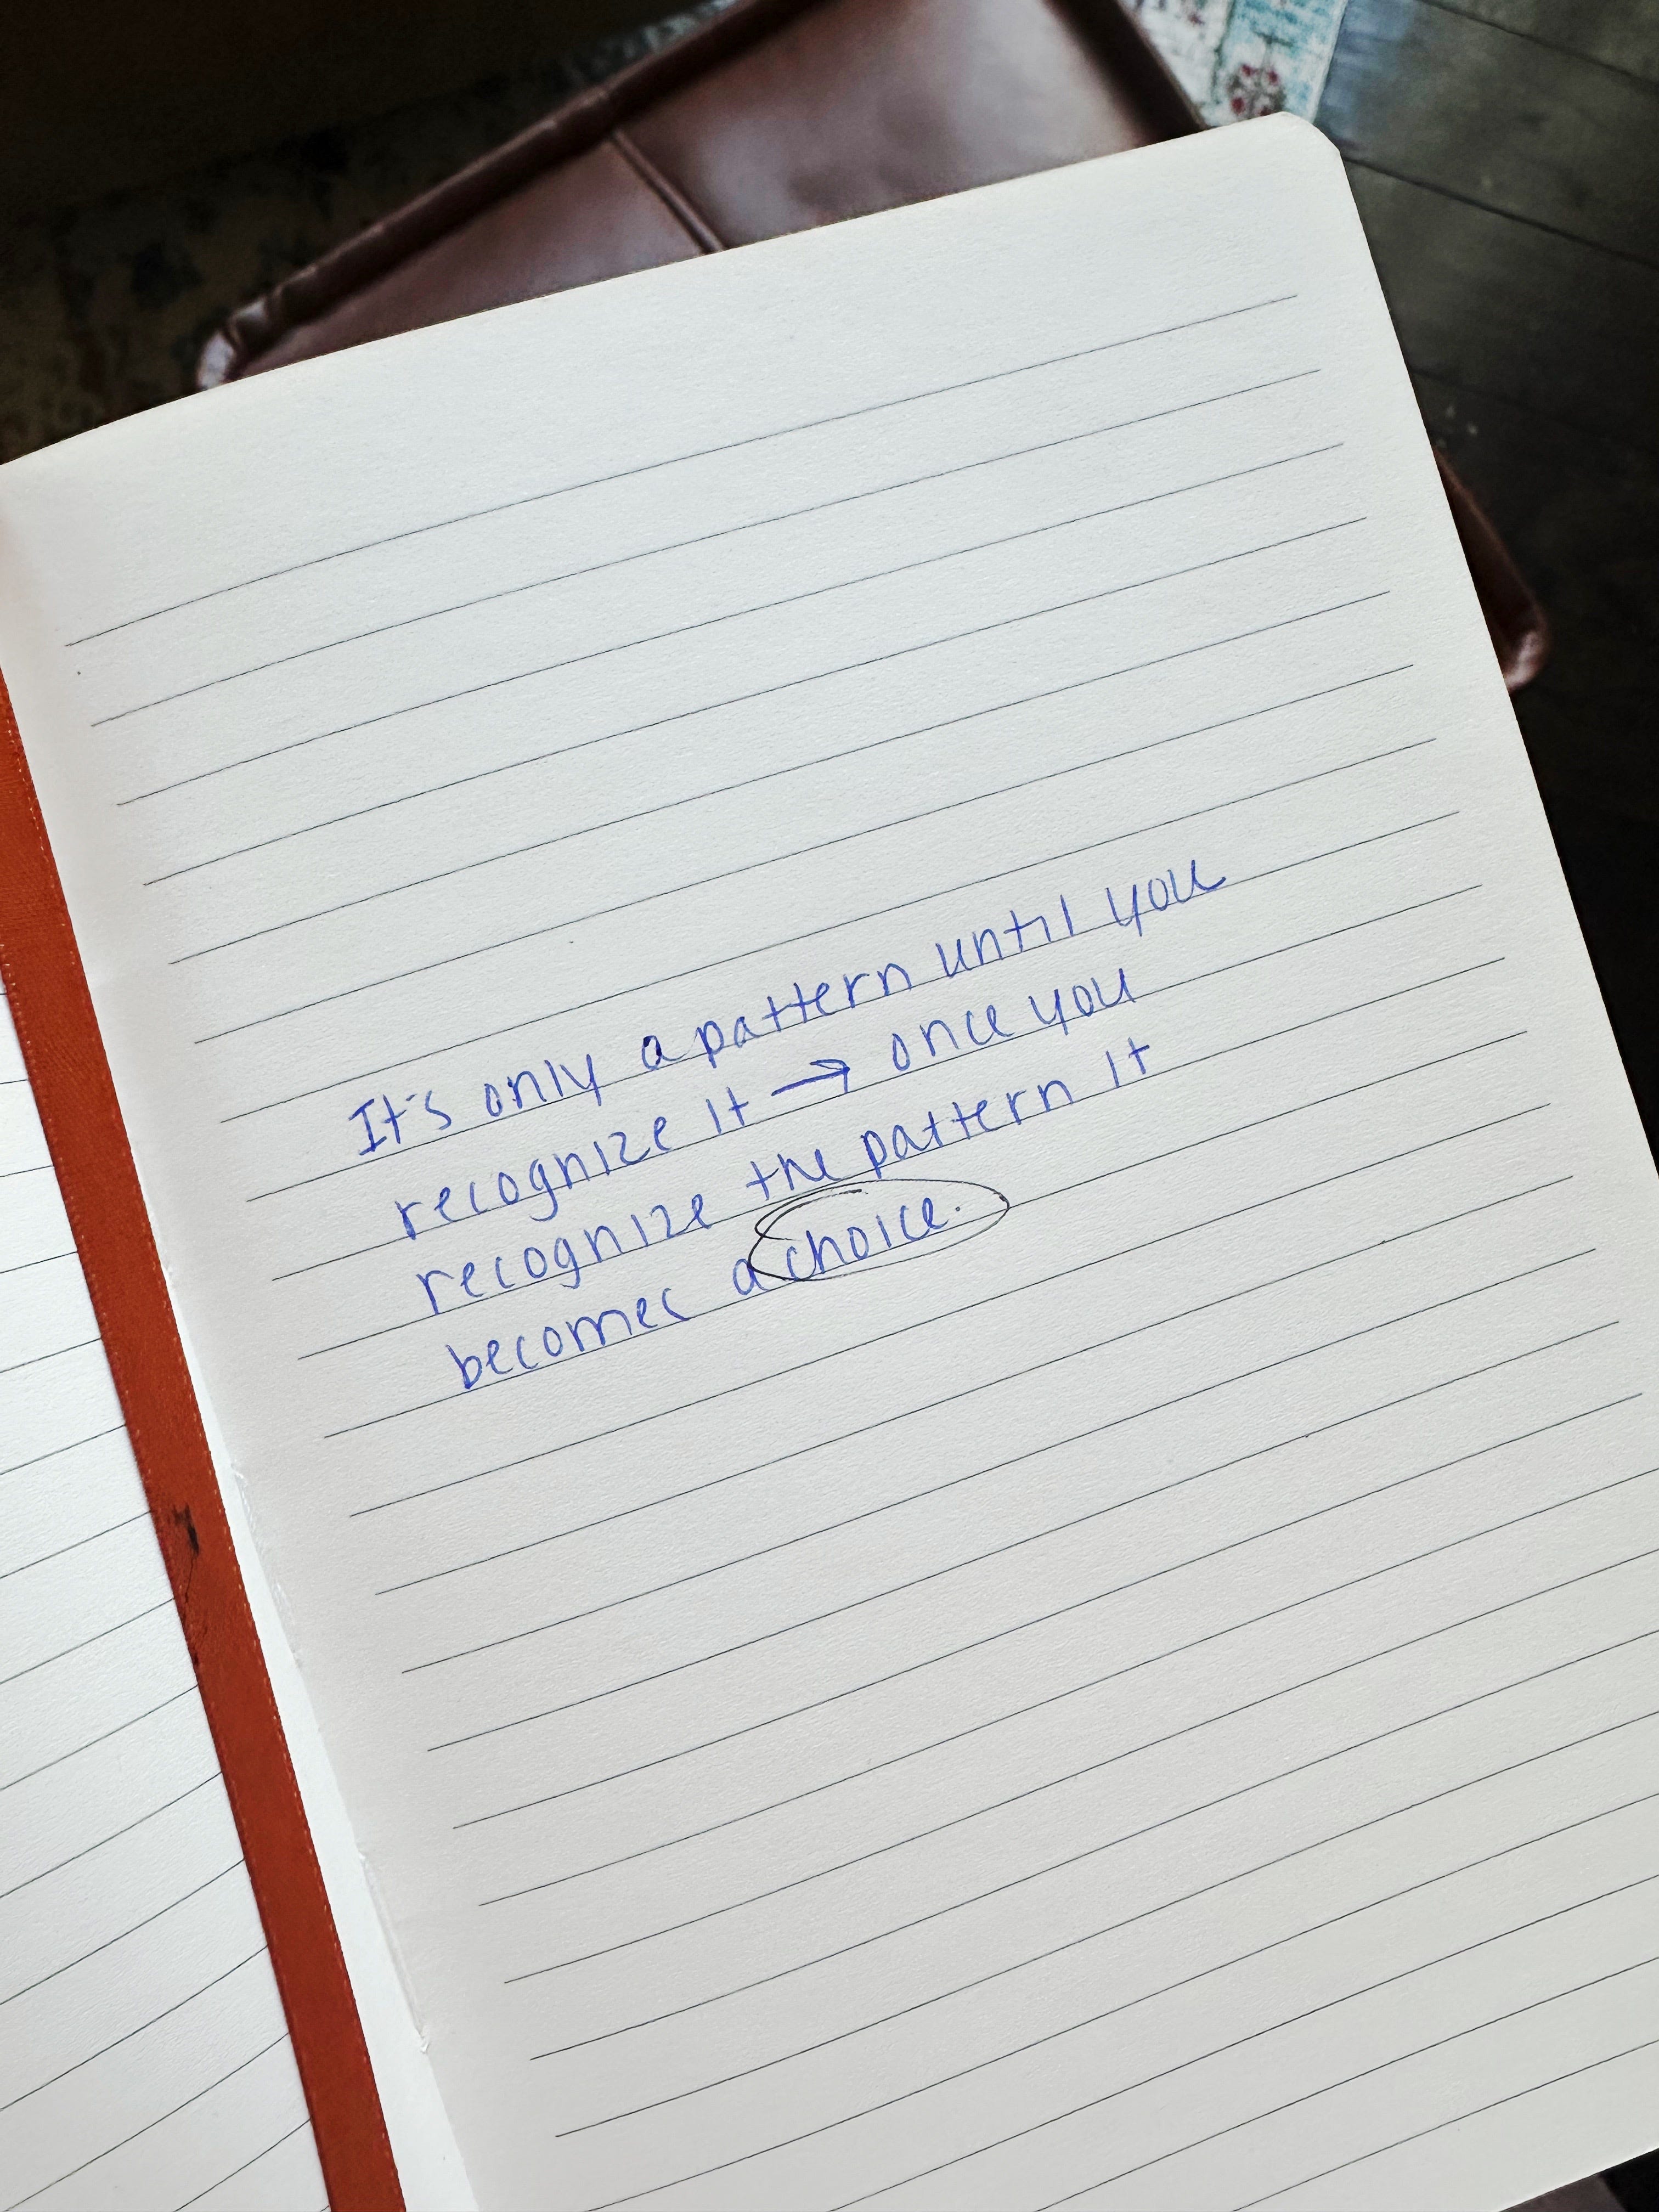 It's only a pattern until you
recognize it → once you
recognize the pattern it
becomes a choice.